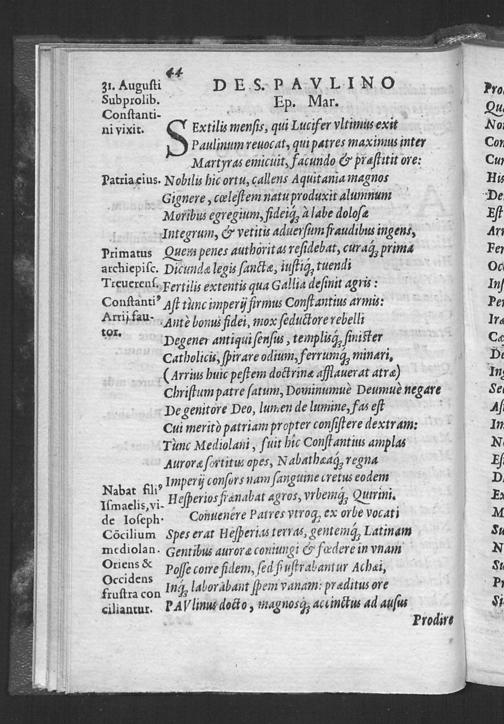 44
DE S. PAVLINO
Ep. Mar.
31. Augusti
Subprolib.
Constanti-
ni vixit.
SExtilis mensis, qui Lucifer vltimus exit
Paulinum reuocat, qui patres maximus inter
Martyras emicuit, facundo & præstitit ore:
Patria eius.
Nobilis hic ortu, callens Aquitania magnos
Gignere, cœlestem natu produxit alumnum
Moribus egregium, fideiq́; à labe dolosæ
Integrum, & vetitis aduersum fraudibus ingens,
Primatus
archiepisc.
Treuerens.
Quem penes authoritas residebat, curaq́; prima
Dicundæ legis sanctæ, iustiq́; tuendi
Fertilis extentis qua Gallia desinit agris:
Constanti'
Arrij fau-
tor.
Ast tùnc imperij firmus Constantius armis:
Antè bonus fidei, mox seductore rebelli
Degener antiqui sensus, templisq́; sinister
Catholicis, spirare odium, ferrumq́; minari.
(Arrius huic pestem doctrinæ afflauerat atræ)
Christum patre satum, Dominumuè Deumuè negare
De genitore Deo, lumen de lumine, fas est
Cui meritò patriam propter consistere dextram:
Tùnc Mediolani, fuit hic Constantius amplas
Auroræ sortitus opes, Nabathæaq́; regna
Imperij consors nam sanguine cretus eodem
Hesperios frænabat agros, vrbemq́; Quirini.
Nabat fili'
Ismaelis, vi-
de Ioseph.
Cōcilium
mediolan.
Oriens &
Occidens
frustra con
ciliantur.
Conuenêre Patres vtroq; ex orbe vocati
Spes erat Hesperias terras, gentemq́; Latinam
Gentibus auroræ coniungi & fœdere in vnam
Posse coire fidem, sed frustrabantur Achæi,
Inq́; laborabant spem vanam: præditus ore
PAVlinus docto, magnosq́; accinctus ad ausus
Prodire